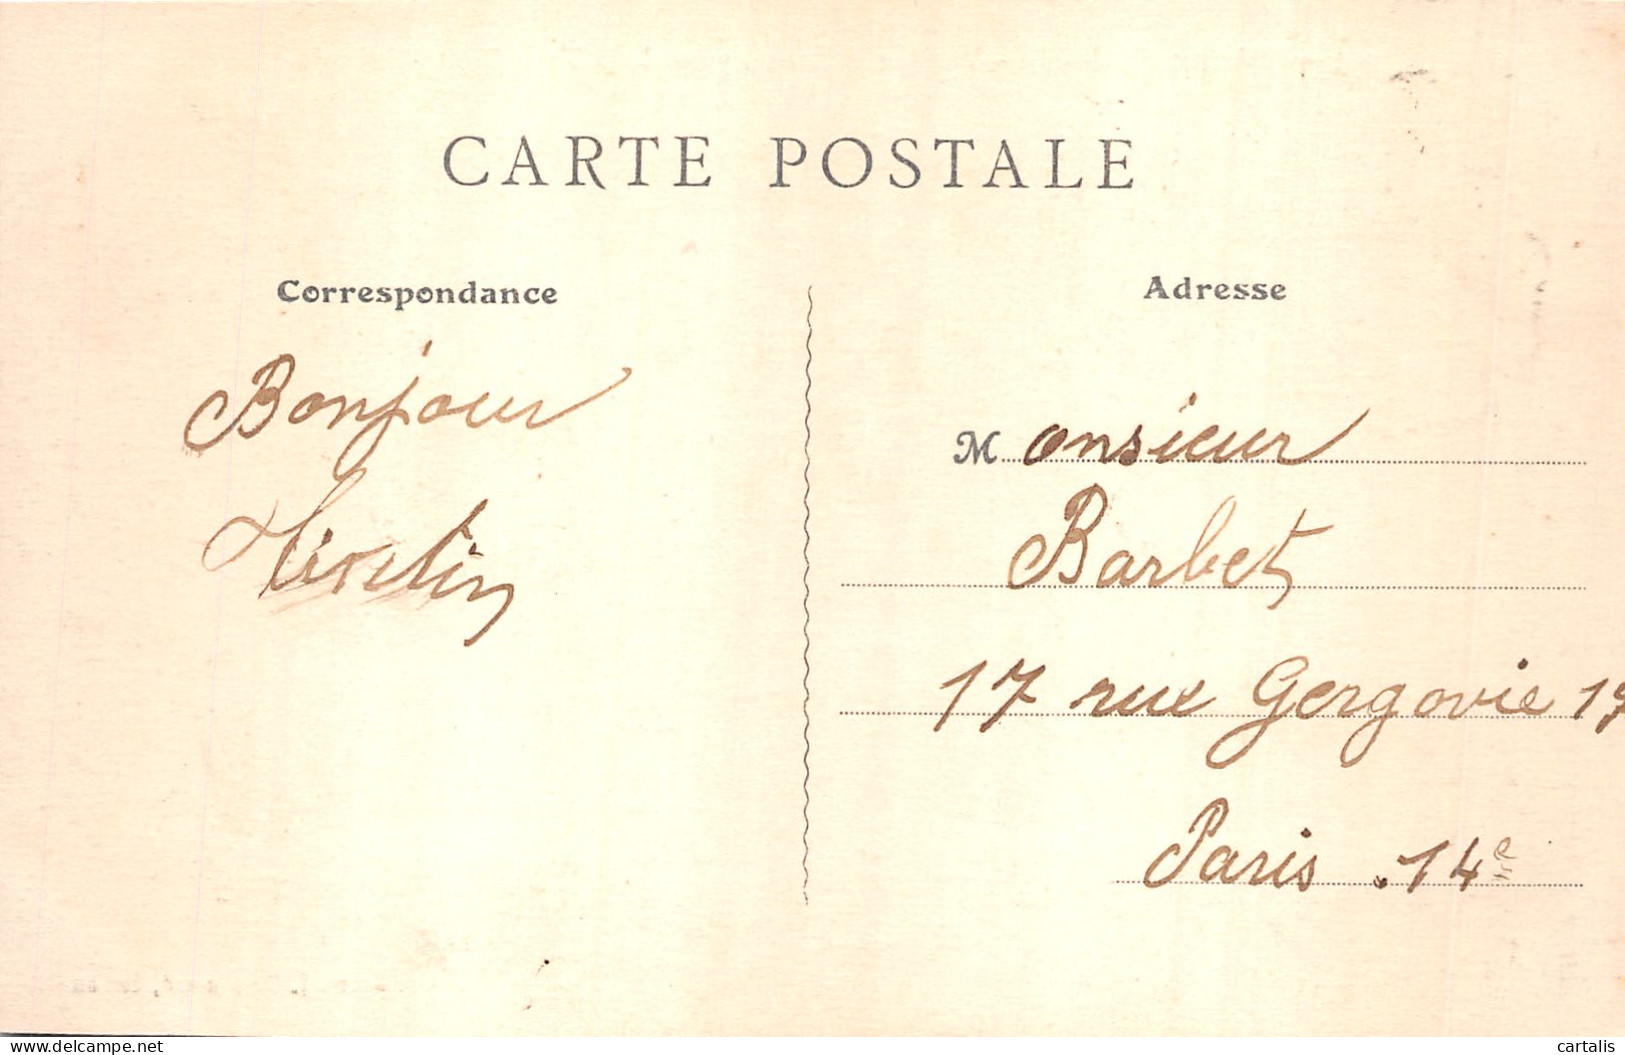 CARTE POSTALE
Correspondance
Bonjour
Adresse
Monsieur
Barbet
17 rue Gergovie 17
Paris . 14e
www.delcampe.net
cartalis